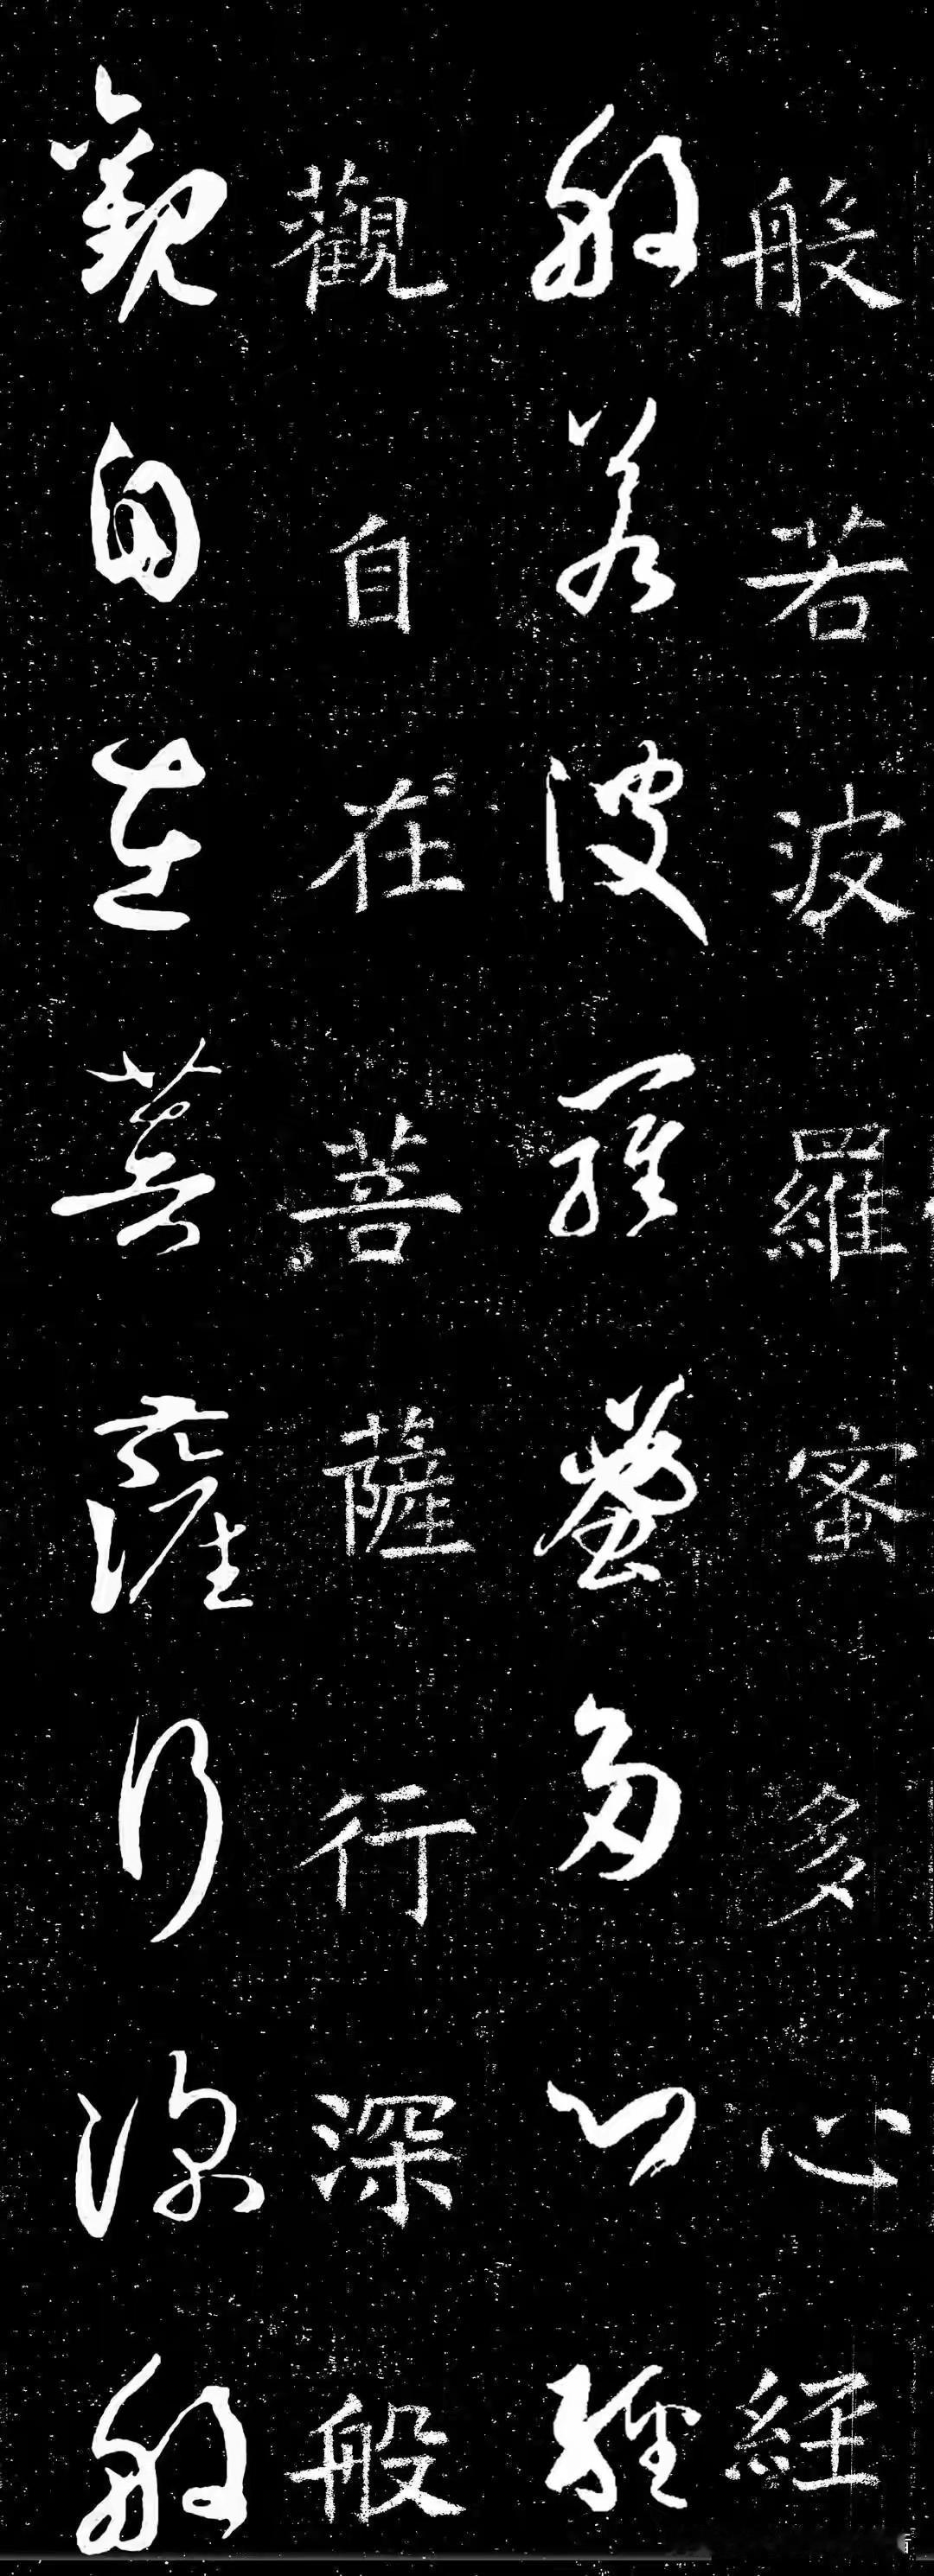 般若波羅蜜多心経
般若波羅蜜多心経
觀自在菩薩行深般
觀自在菩薩行深般